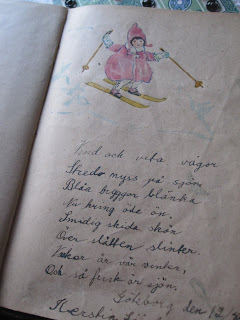 och vita vågor
nyss på sjön
Blåa bryggor blänka
Nu kring öde ön.
Smidig skida skön
Över slätten slinter.
Vacker är vår vinter,
Och så frisk är sjön.
Göteborg den 12
Kerstin